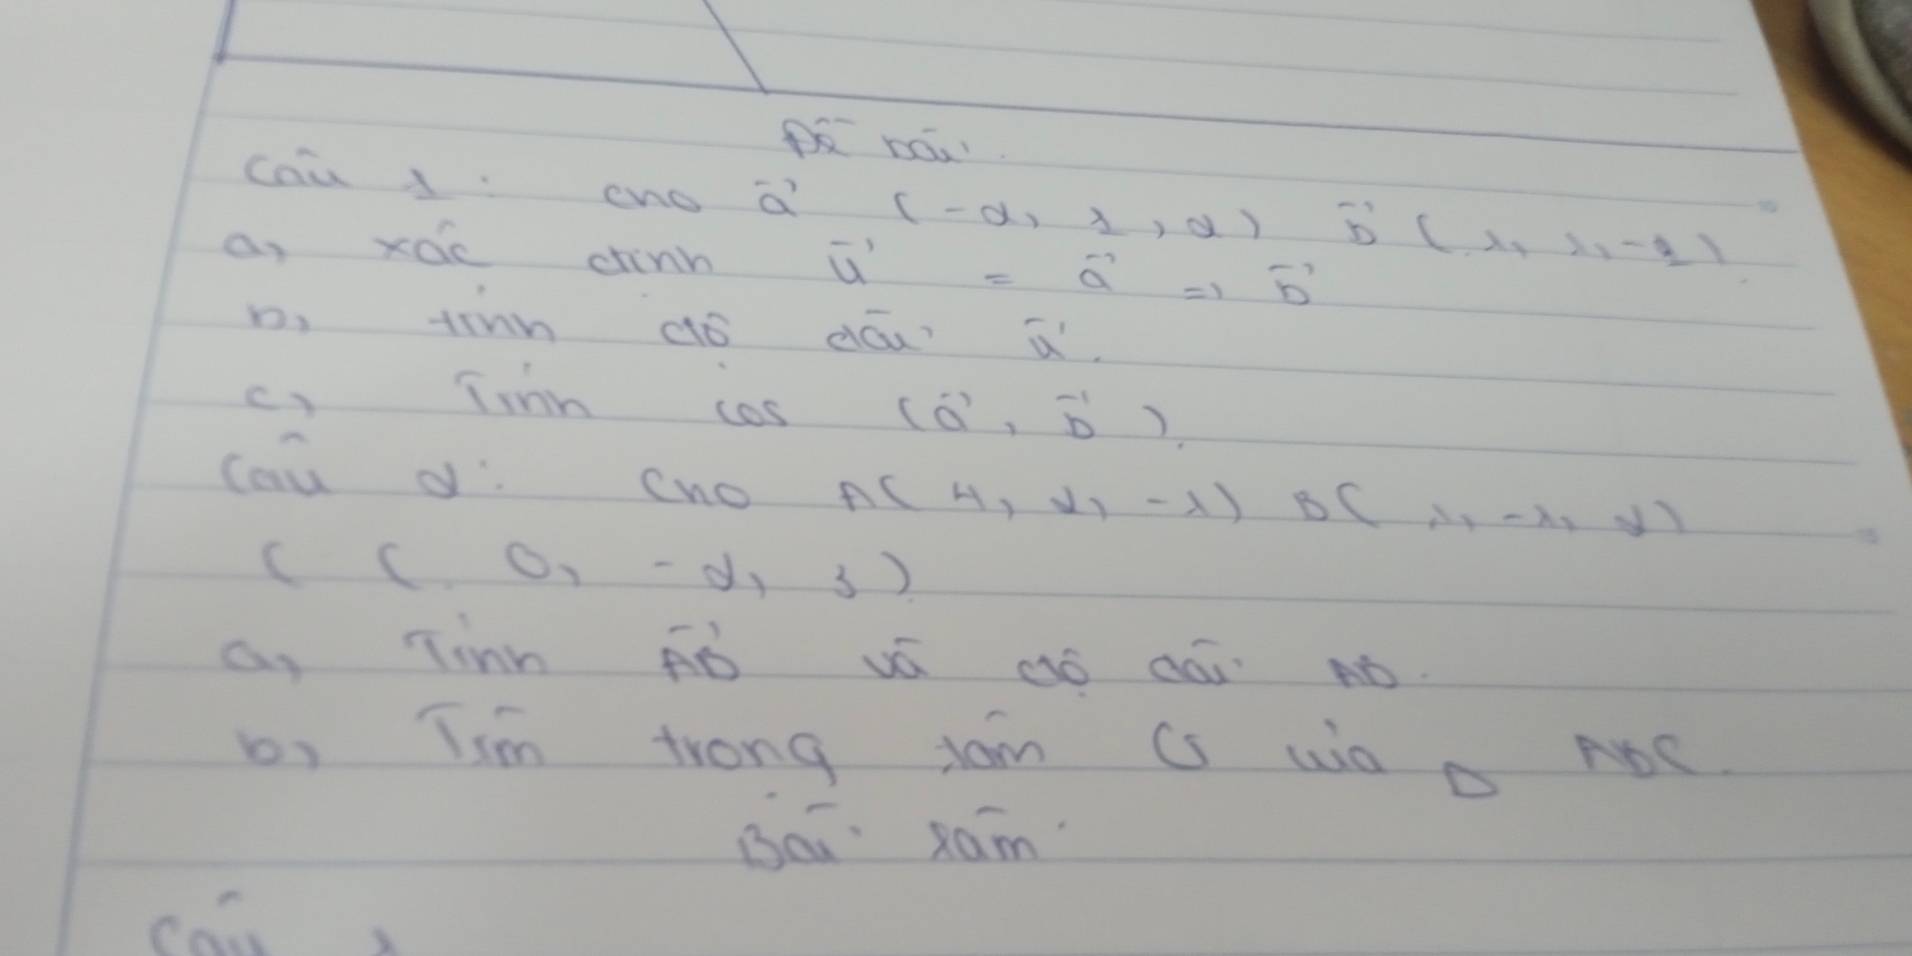 Đề bài
Câu 1: cho a⃗ (-2, 1, 2) b⃗ (1, 1, -1)
a, xác định u⃗ = a⃗ b⃗
b, tính độ dài u⃗.
c, Tính cos (a⃗, b⃗).
Câu 2: Cho A(4, 2, -1) B(1, -1, 2)
C(0, -2, 3)
a, Tính AB⃗ và độ dài AB.
b, Tìm trọng tâm G của Δ ABC.
Bài làm
Câu 1